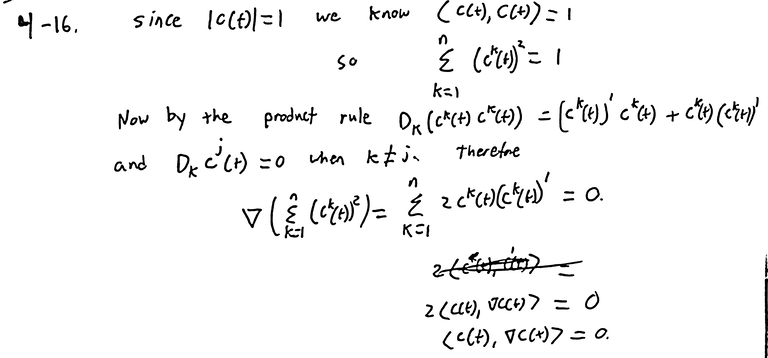 4-16. since |c(t)|=1 we know ⟨c(t), c(t)⟩ = 1
so n∑k=1 (c^k(t))² = 1
Now by the product rule D_k(c^k(t) c^k(t)) = (c^k(t))' c^k(t) + c^k(t)(c^k(t))'
and D_k c^j(t) = 0 when k ≠ j. Therefore
∇(n∑k=1 (c^k(t))²) = n∑k=1 2 c^k(t)(c^k(t))' = 0.
2⟨c(t), ∇c(t)⟩ = 0
⟨c(t), ∇c(t)⟩ = 0.